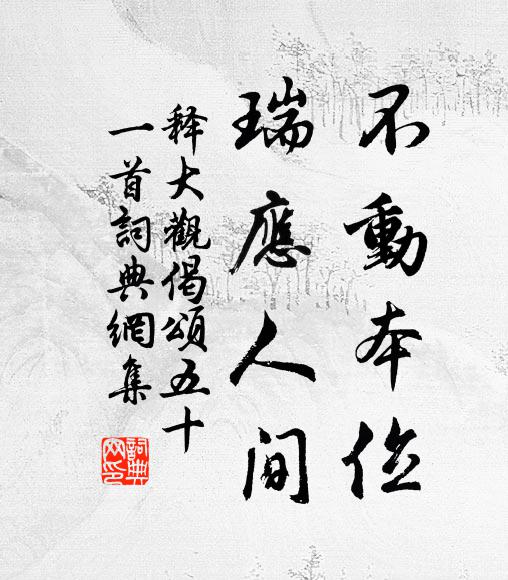 不動本位
瑞應人间
释大觀偈頌五十
一首詞典網集
詞典
网印